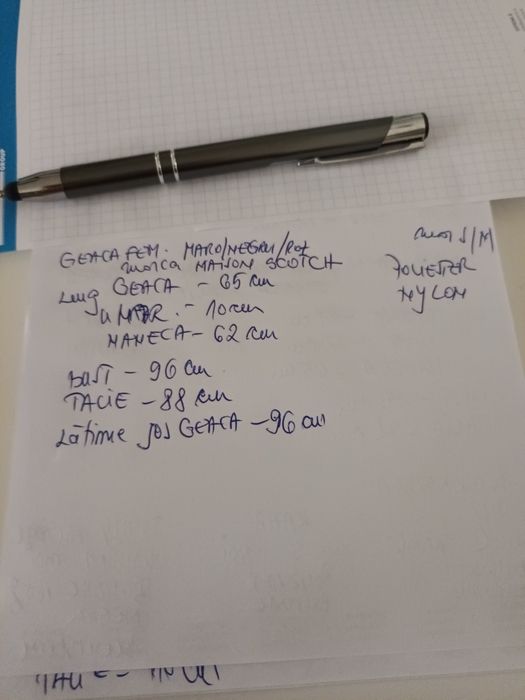 GEACA FEM. MARO/NEGRU/Roz
marca MAISON SCOTCH
mar S/M
POLIESTER
NYLON
lung GEACA - 65 cm
UMĂR. - 10 cm
MANECA - 62 cm
BUST - 96 cm
TALIE - 88 cm
Lățime jos GEACA - 96 cm
GROUP